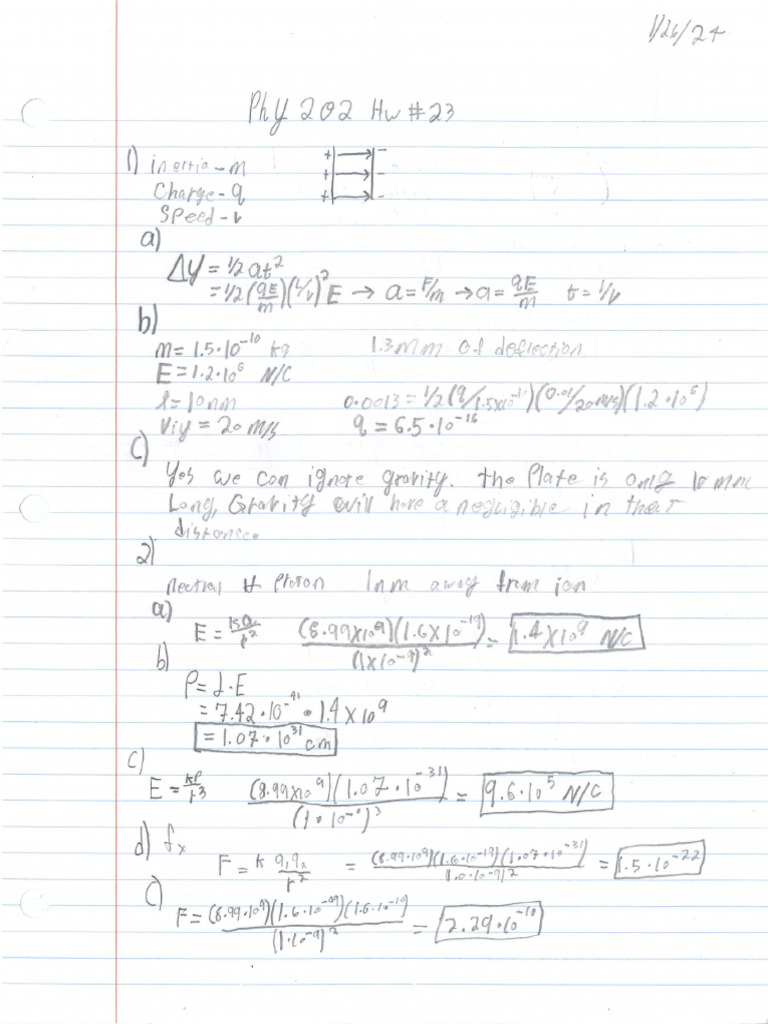 1/26/24
Phy 202 Hw #23
1) inertia - m
Charge - q
Speed - v
+ -
+ -
+ -
a)
Δy = 1/2 at²
= 1/2 (qE/m)(L/v)² E → a = F/m → a = qE/m t = L/v
b)
m = 1.5·10⁻¹⁰ kg 1.3mm of deflection
E = 1.2·10⁶ N/C
l = 10mm 0.0013 = 1/2 (q/1.5x10⁻¹⁰)(0.01/20 m/s)(1.2·10⁶)
Viy = 20 m/s q = 6.5·10⁻¹⁶
C)
Yes we can ignore gravity. the Plate is only 10 mm
Long, Gravity will have a negligible in that
distance.
2)
neutral H Proton 1nm away from ion
a)
E = kQ/r² (8.99x10⁹)(1.6x10⁻¹⁹)/(1x10⁻⁹)² = 1.4x10⁹ N/C
b)
P = α·E
= 7.42·10⁻⁴¹ · 1.4x10⁹
= 1.07·10³¹ cm
C)
E = kP/r³ (8.99x10⁹)(1.07·10⁻³¹)/(1·10⁻⁹)³ = 9.6·10⁵ N/C
d) fx
F = k q₁qₓ/r² = (8.99·10⁹)(1.6·10⁻¹⁹)(1.07·10⁻³¹)/(1.0·10⁻⁹)² = 1.5·10⁻²²
C)
F = (8.99·10⁹)(1.6·10⁻¹⁹)(1.6·10⁻¹⁹)/(1·10⁻⁹)² = 2.29·10⁻¹⁰